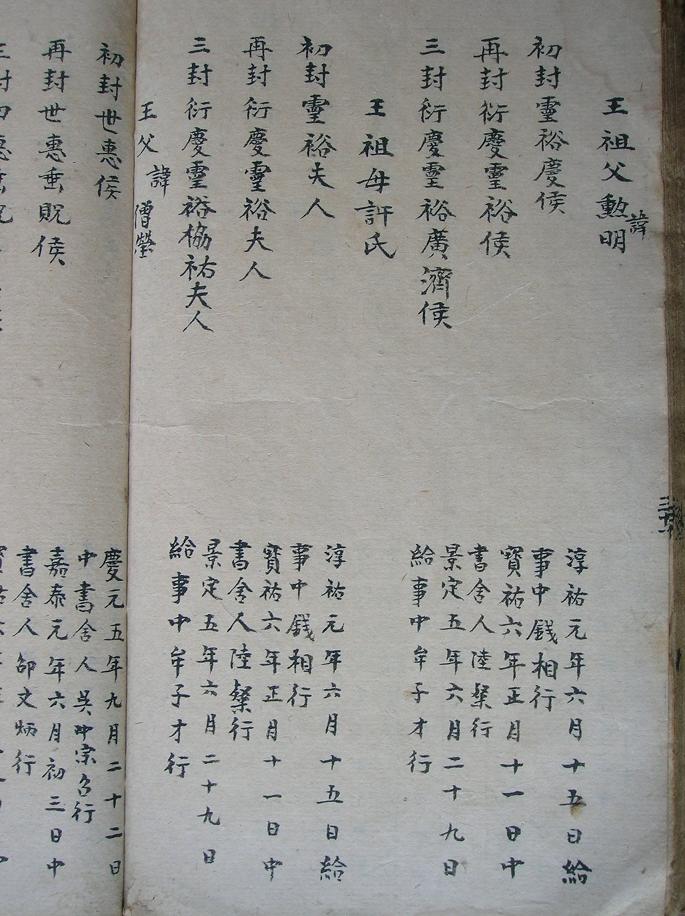 王祖父諱勲明
初封靈裕慶侯
淳祐元年六月十五日給
事中錢相行
再封衍慶靈裕侯
寳祐六年正月十一日中
書舍人陸粲行
三封衍慶靈裕廣濟侯
景定五年六月二十九日
給事中牟子才行
王祖母許氏
初封靈裕夫人
淳祐元年六月十五日給
事中錢相行
再封衍慶靈裕夫人
寳祐六年正月十一日中
書舍人陸粲行
三封衍慶靈裕協祐夫人
景定五年六月二十九日
給事中牟子才行
王父諱僧瑩
初封世惠侯
慶元五年九月二十二日
中書舍人吳中宗行
再封世惠垂貺侯
嘉泰元年六月初三日中
書舍人邵文炳行